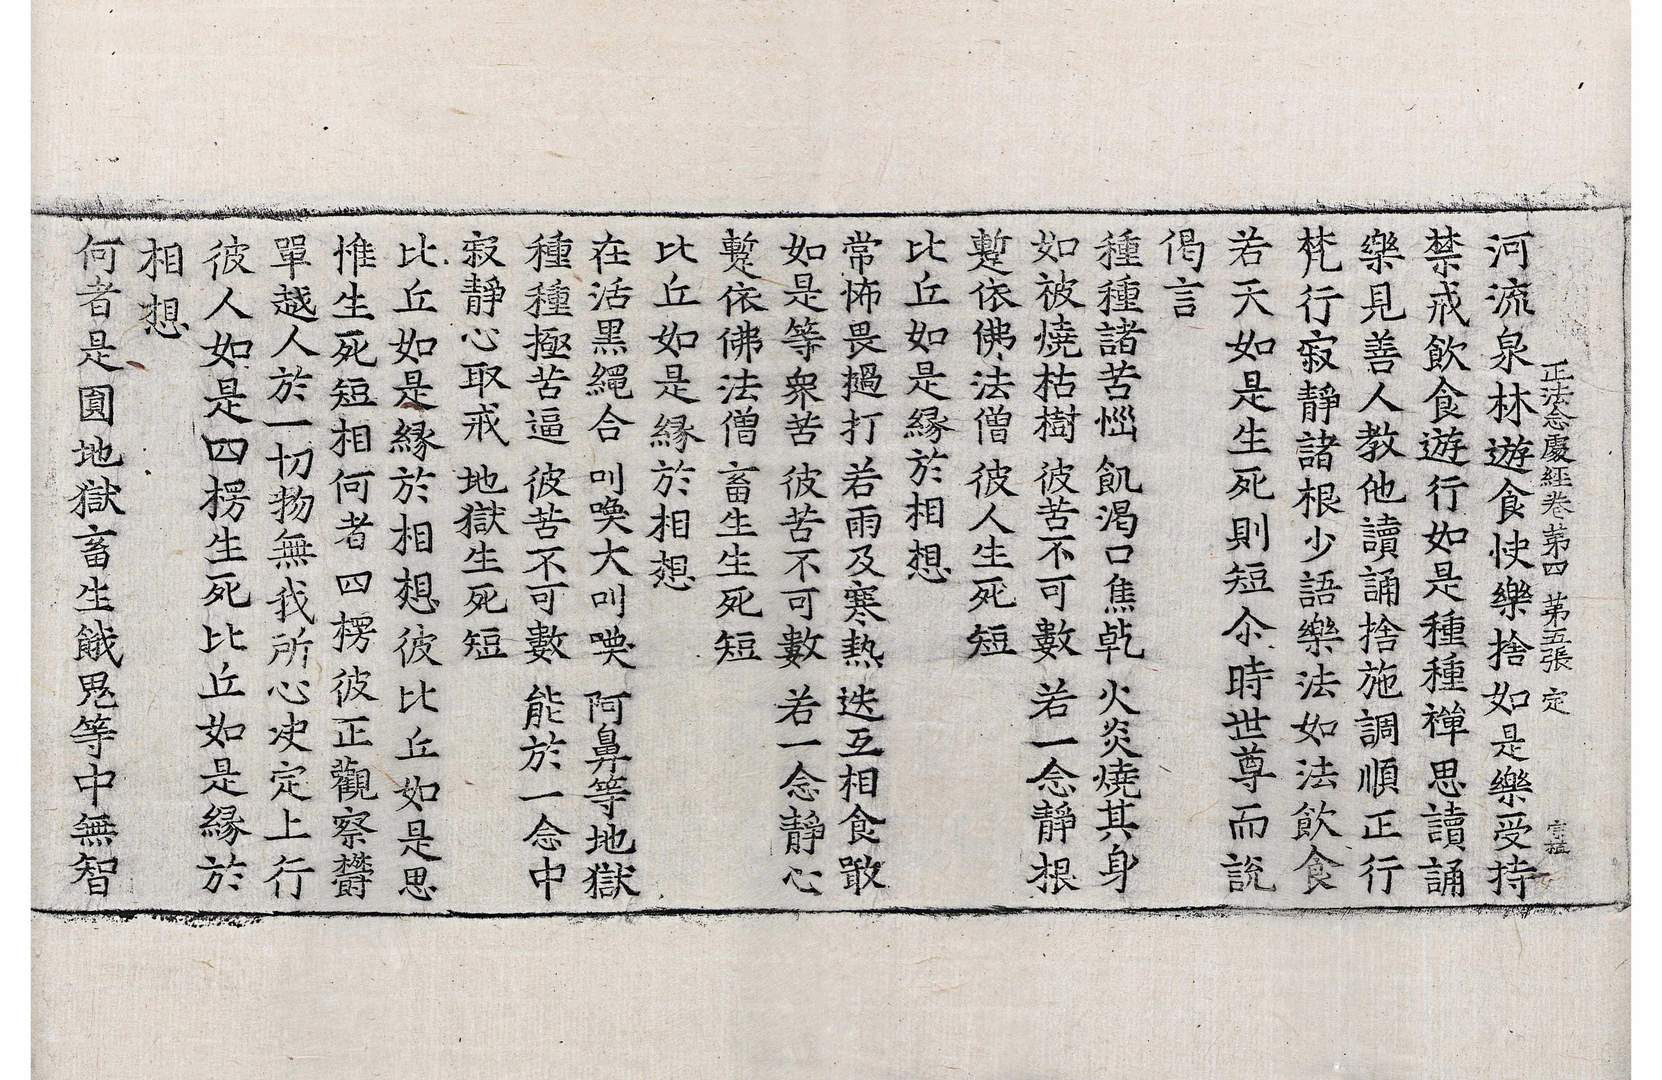 正法念處經卷第四 第五張 定
河流泉林遊食快樂捨如是樂受持
禁戒飲食遊行如是種種禪思讀誦
樂見善人教他讀誦捨施調順正行
梵行寂靜諸根少語樂法如法飲食
若天如是生死則短尒時世尊而說
偈言
種種諸苦惱 飢渴口焦乾 火炎燒其身
如被燒枯樹 彼苦不可數 若一念靜根
蹔依佛法僧 彼人生死短
比丘如是緣於相想
常怖畏撾打 若雨及寒熱 迭互相食噉
如是等衆苦 彼苦不可數 若一念靜心
蹔依佛法僧 畜生生死短
比丘如是緣於相想
在活黑繩合 叫喚大叫喚 阿鼻等地獄
種種極苦逼 彼苦不可數 能於一念中
寂靜心取戒 地獄生死短
比丘如是緣於相想彼比丘如是思
惟生死短相何者四楞彼正觀察欝
單越人於一切物無我所心决定上行
彼人如是四楞生死比丘如是緣於
相想
何者是圓地獄畜生餓鬼等中無智